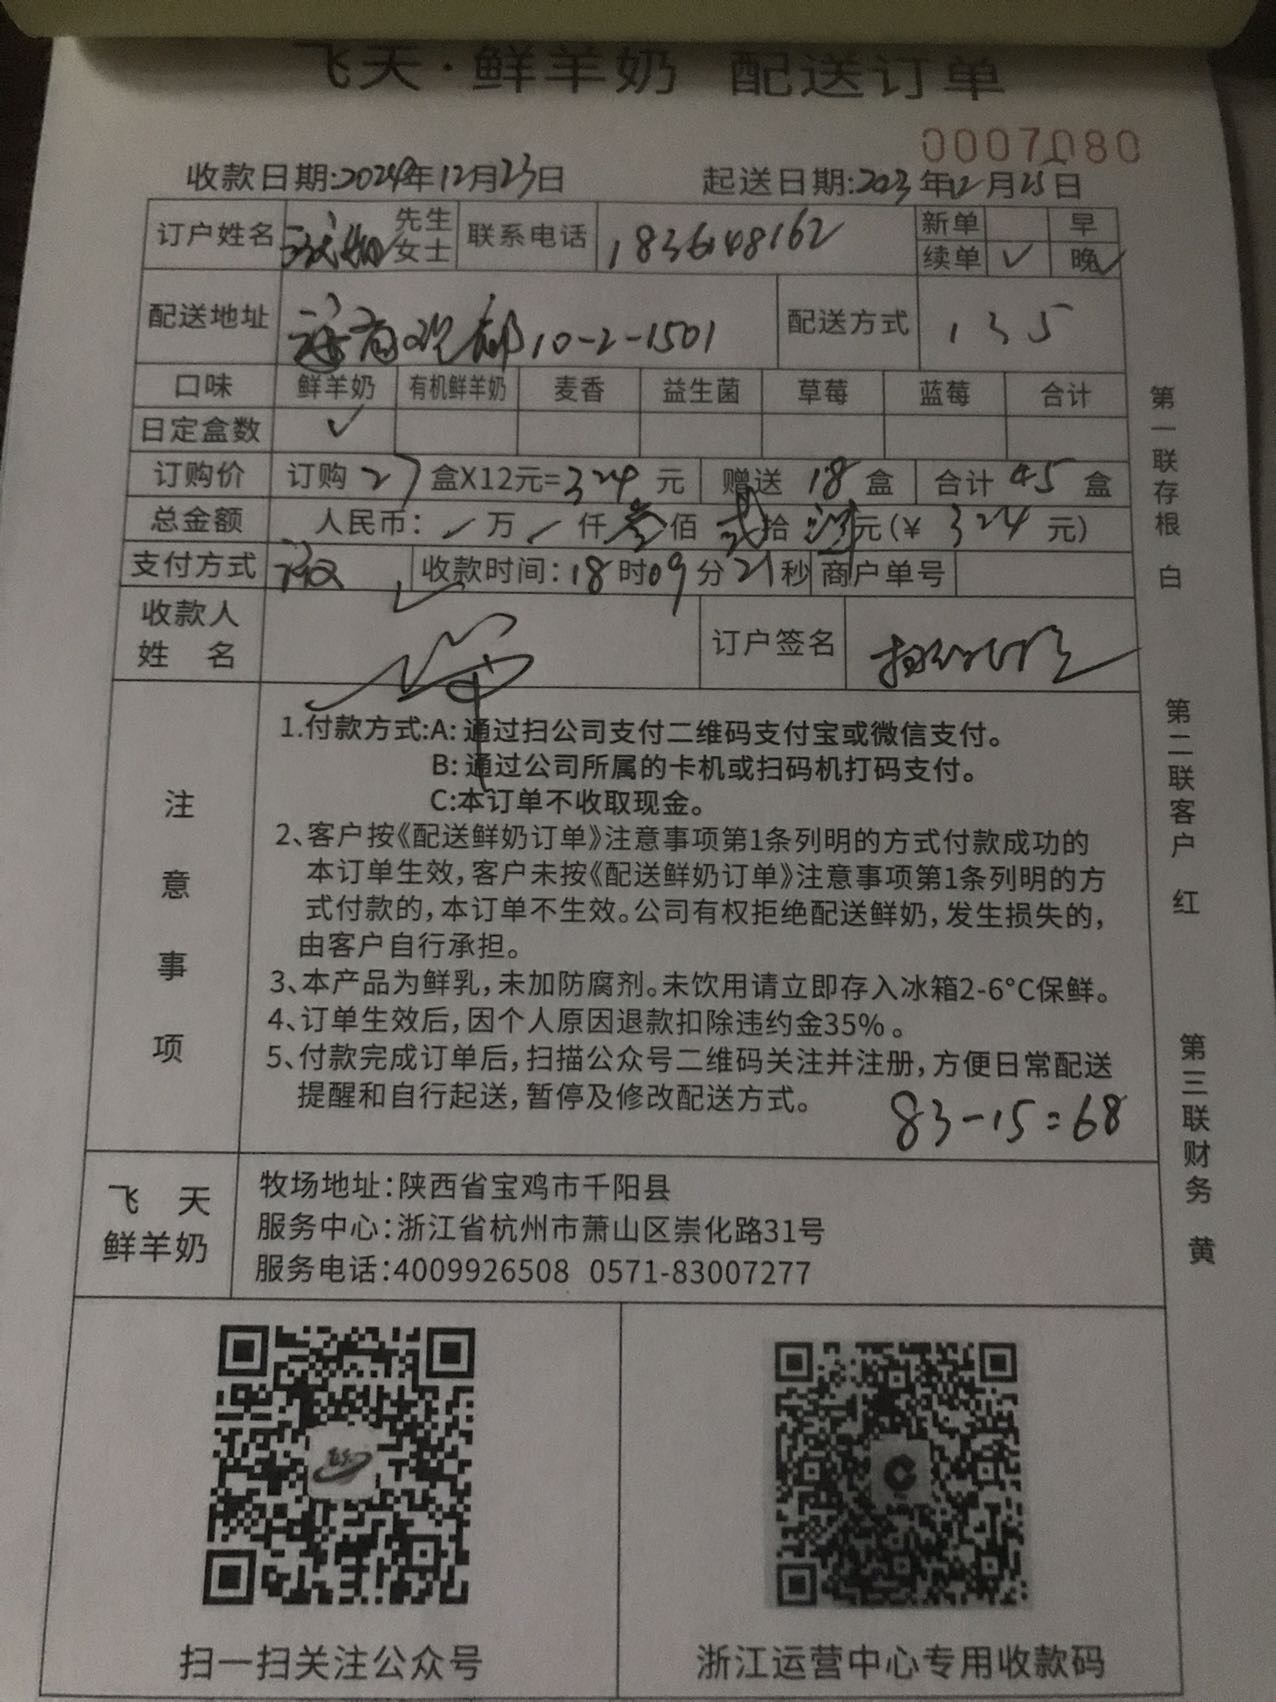 飞天·鲜羊奶 配送订单
0007080
收款日期:2024年12月23日 起送日期:2023年12月25日
订户姓名 先生 女士 联系电话 1836148162 新单 早
续单 ✓ 晚 ✓
配送地址 10-2-1501 配送方式 135
口味 鲜羊奶 有机鲜羊奶 麦香 益生菌 草莓 蓝莓 合计
日定盒数 ✓
订购价 订购 27 盒X12元=324 元 赠送 18 盒 合计 45 盒
总金额 人民币: 万 仟 叁佰 贰拾 元(¥ 324 元)
支付方式 收款时间:18时09分21秒 商户单号
收款人
姓 名 订户签名
注意事项
1.付款方式:A:通过扫公司支付二维码支付宝或微信支付。
B:通过公司所属的卡机或扫码机打码支付。
C:本订单不收取现金。
2、客户按《配送鲜奶订单》注意事项第1条列明的方式付款成功的
本订单生效,客户未按《配送鲜奶订单》注意事项第1条列明的方
式付款的,本订单不生效。公司有权拒绝配送鲜奶,发生损失的,
由客户自行承担。
3、本产品为鲜乳,未加防腐剂。未饮用请立即存入冰箱2-6°C保鲜。
4、订单生效后,因个人原因退款扣除违约金35%。
5、付款完成订单后,扫描公众号二维码关注并注册,方便日常配送
提醒和自行起送,暂停及修改配送方式。
83-15=68
飞 天
鲜羊奶
牧场地址:陕西省宝鸡市千阳县
服务中心:浙江省杭州市萧山区崇化路31号
服务电话:4009926508 0571-83007277
扫一扫关注公众号
浙江运营中心专用收款码
第一联存根 白
第二联客户 红
第三联财务 黄